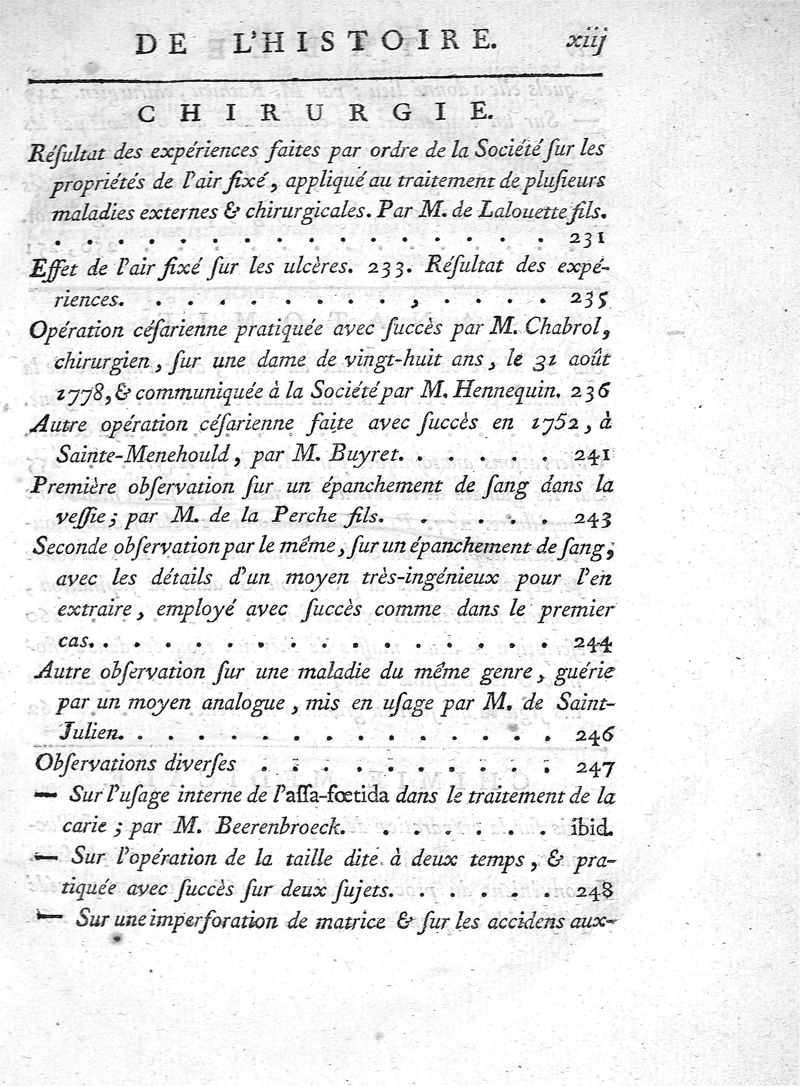 DE L'HISTOIRE. xiij
CHIRURGIE.
Réſultat des expériences faites par ordre de la Société ſur les
propriétés de l'air fixé, appliqué au traitement de pluſieurs
maladies externes & chirurgicales. Par M. de Lalouette fils.
. . . . . . . . . . . . . . . . 231
Effet de l'air fixé ſur les ulcères. 233. Réſultat des expé-
riences. . . . . . . . . , . . . . 235
Opération céſarienne pratiquée avec ſuccès par M. Chabrol,
chirurgien, ſur une dame de vingt-huit ans, le 31 août
1778, & communiquée à la Société par M. Hennequin. 236
Autre opération céſarienne faite avec ſuccès en 1752, à
Sainte-Menehould, par M. Buyret. . . . . . 241
Première obſervation ſur un épanchement de ſang dans la
veſſie; par M. de la Perche fils. . . . . . 243
Seconde obſervation par le même, ſur un épanchement de ſang,
avec les détails d'un moyen très-ingénieux pour l'en
extraire, employé avec ſuccès comme dans le premier
cas. . . . . . . . . . . . . . . . 244
Autre obſervation ſur une maladie du même genre, guérie
par un moyen analogue, mis en uſage par M. de Saint-
Julien. . . . . . . . . . . . . . . 246
Obſervations diverſes . . . . . . . . . . 247
— Sur l'uſage interne de l'aſſa-fœtida dans le traitement de la
carie; par M. Beerenbroeck. . . . . . . . ibid.
— Sur l'opération de la taille dite à deux temps, & pra-
tiquée avec ſuccès ſur deux ſujets. . . . . . 248
— Sur une imperforation de matrice & ſur les accidens aux-